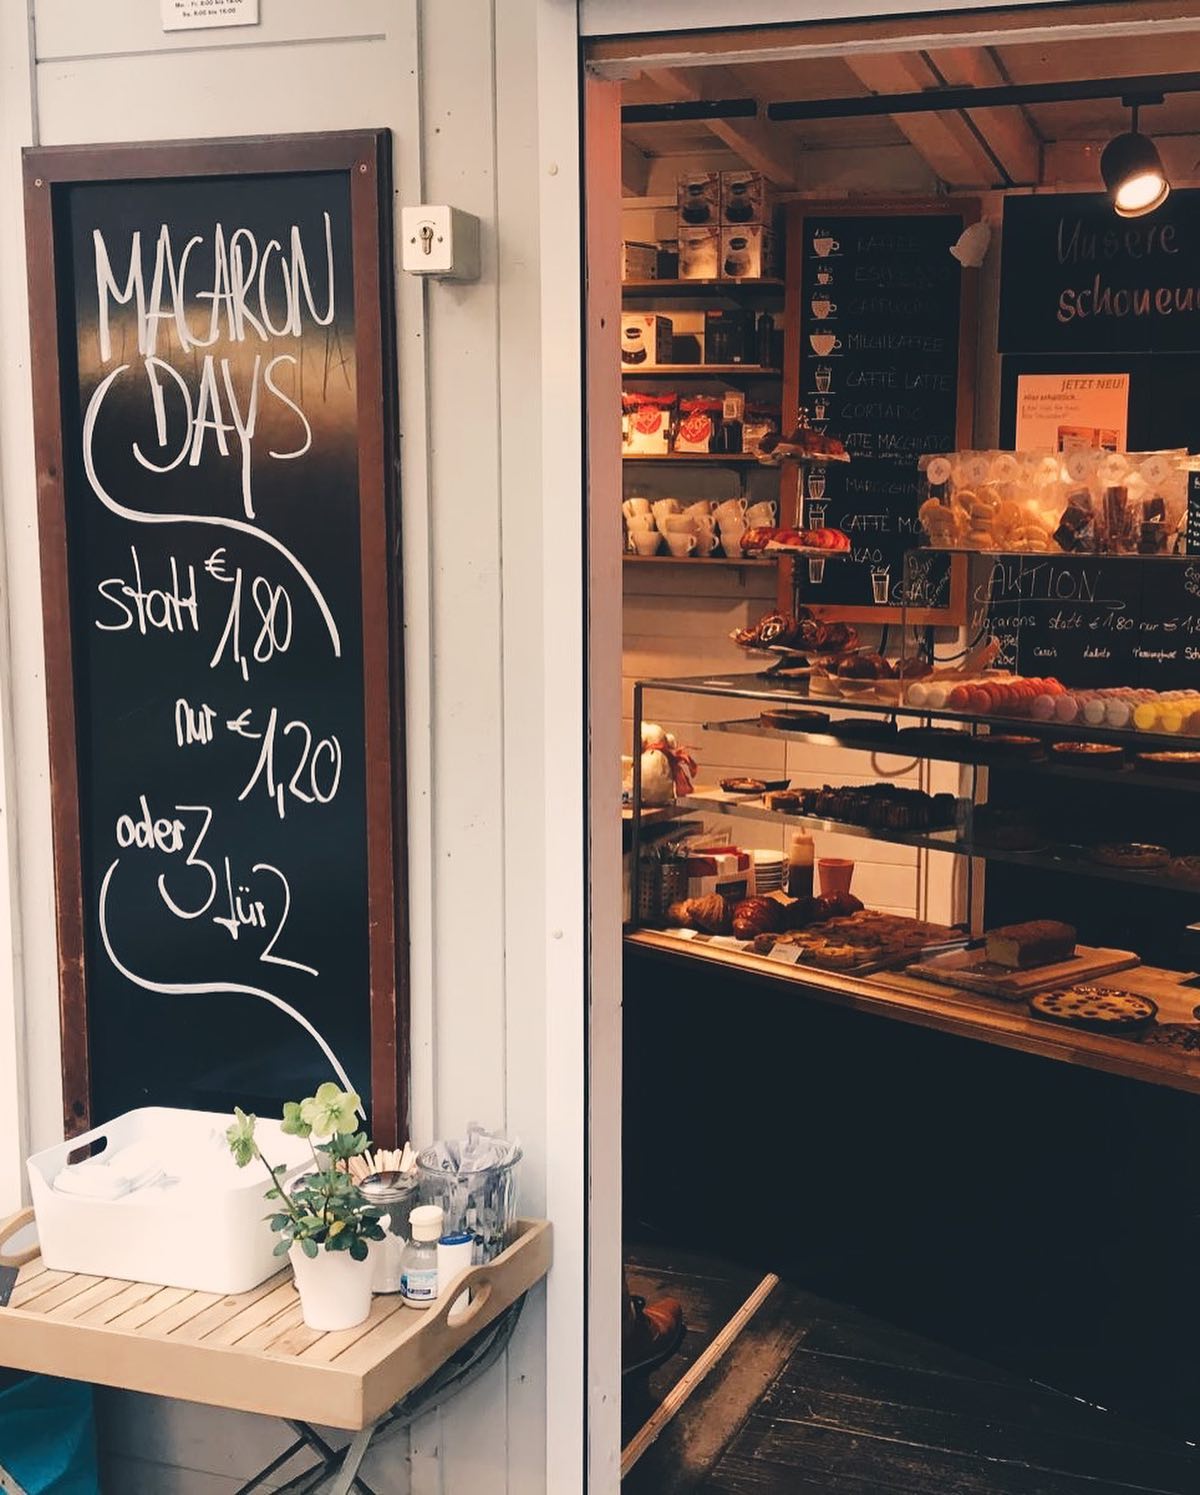 Mo. - Fr. 8:00 bis 18:00
Sa. 8:00 bis 16:00
MACARON
DAYS
statt €1,80
nur €1,20
oder 3 für 2
KAFFEE
ESPRESSO
CAPPUCCINO
MILCHKAFFEE
CAFFÈ LATTE
CORTADO
LATTE MACCHIATO
CAFFÈ MO
KAO
Unsere
schoenen
JETZT NEU!
Hier erhältlich...
AKTION
Macarons statt €1,80 nur €1,
Cassis